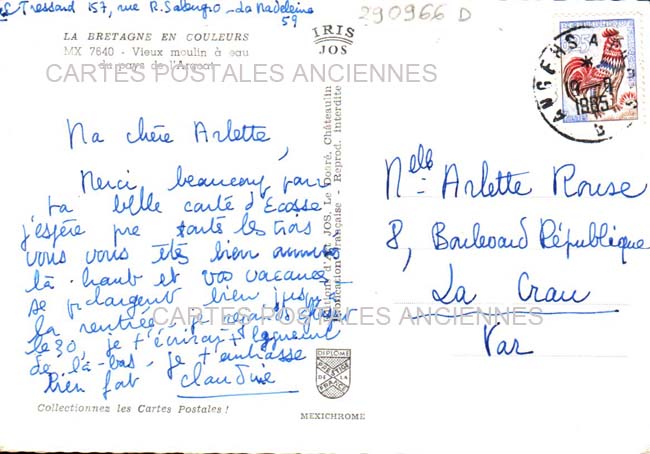 Tressard 157, rue R. Salengro - La Madeleine
59
290966 D
LA BRETAGNE EN COULEURS
MX 7640 - Vieux moulin à eau
du pays de l'Argoat
IRIS
JOS
CARTES POSTALES ANCIENNES
ANGERS
1965
Ma chère Arlette,
Merci beaucoup pour
ta belle carte d'Ecosse
j'espère que toute les trois
vous vous êtes bien amusé
là-haut et vos vacances
se prolongent bien jusqu'à
la rentrée.
le 30, je t'écrirai
de là-bas. je t'embrasse
bien fort Claudine
Melle Arlette Rouse
8, Boulevard République
La Crau
Var
CARTES POSTALES ANCIENNES
Editions d'Art JOS, Le Doaré, Châteaulin
Fabrication Française - Reprod. Interdite
DIPLOME
PRESTIGE
DE LA
FRANCE
Collectionnez les Cartes Postales !
MEXICHROME